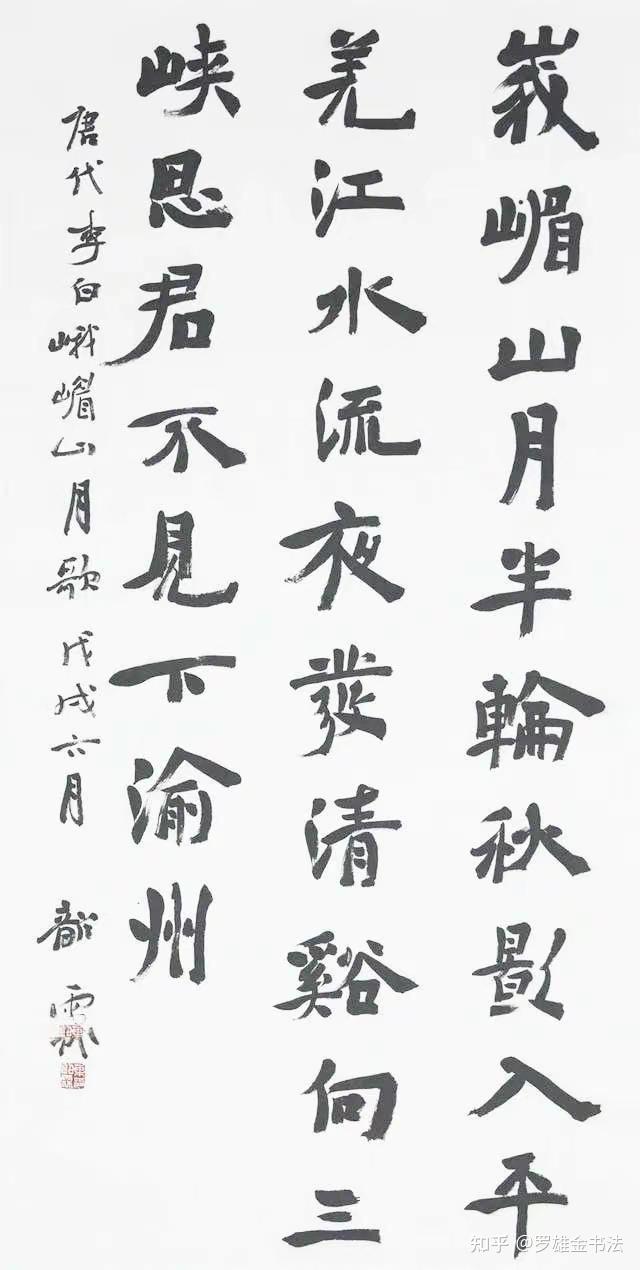 峩嵋山月半輪秋影入平
羌江水流夜發清谿向三
峡思君不見下渝州
唐代李白峨嵋山月歌戊戌六月
知乎 @罗雄金书法